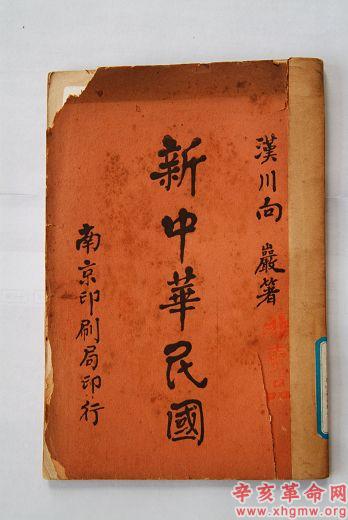 漢川向巖著
新中華民國
南京印刷局印行
辛亥革命网
www.xhgmw.org